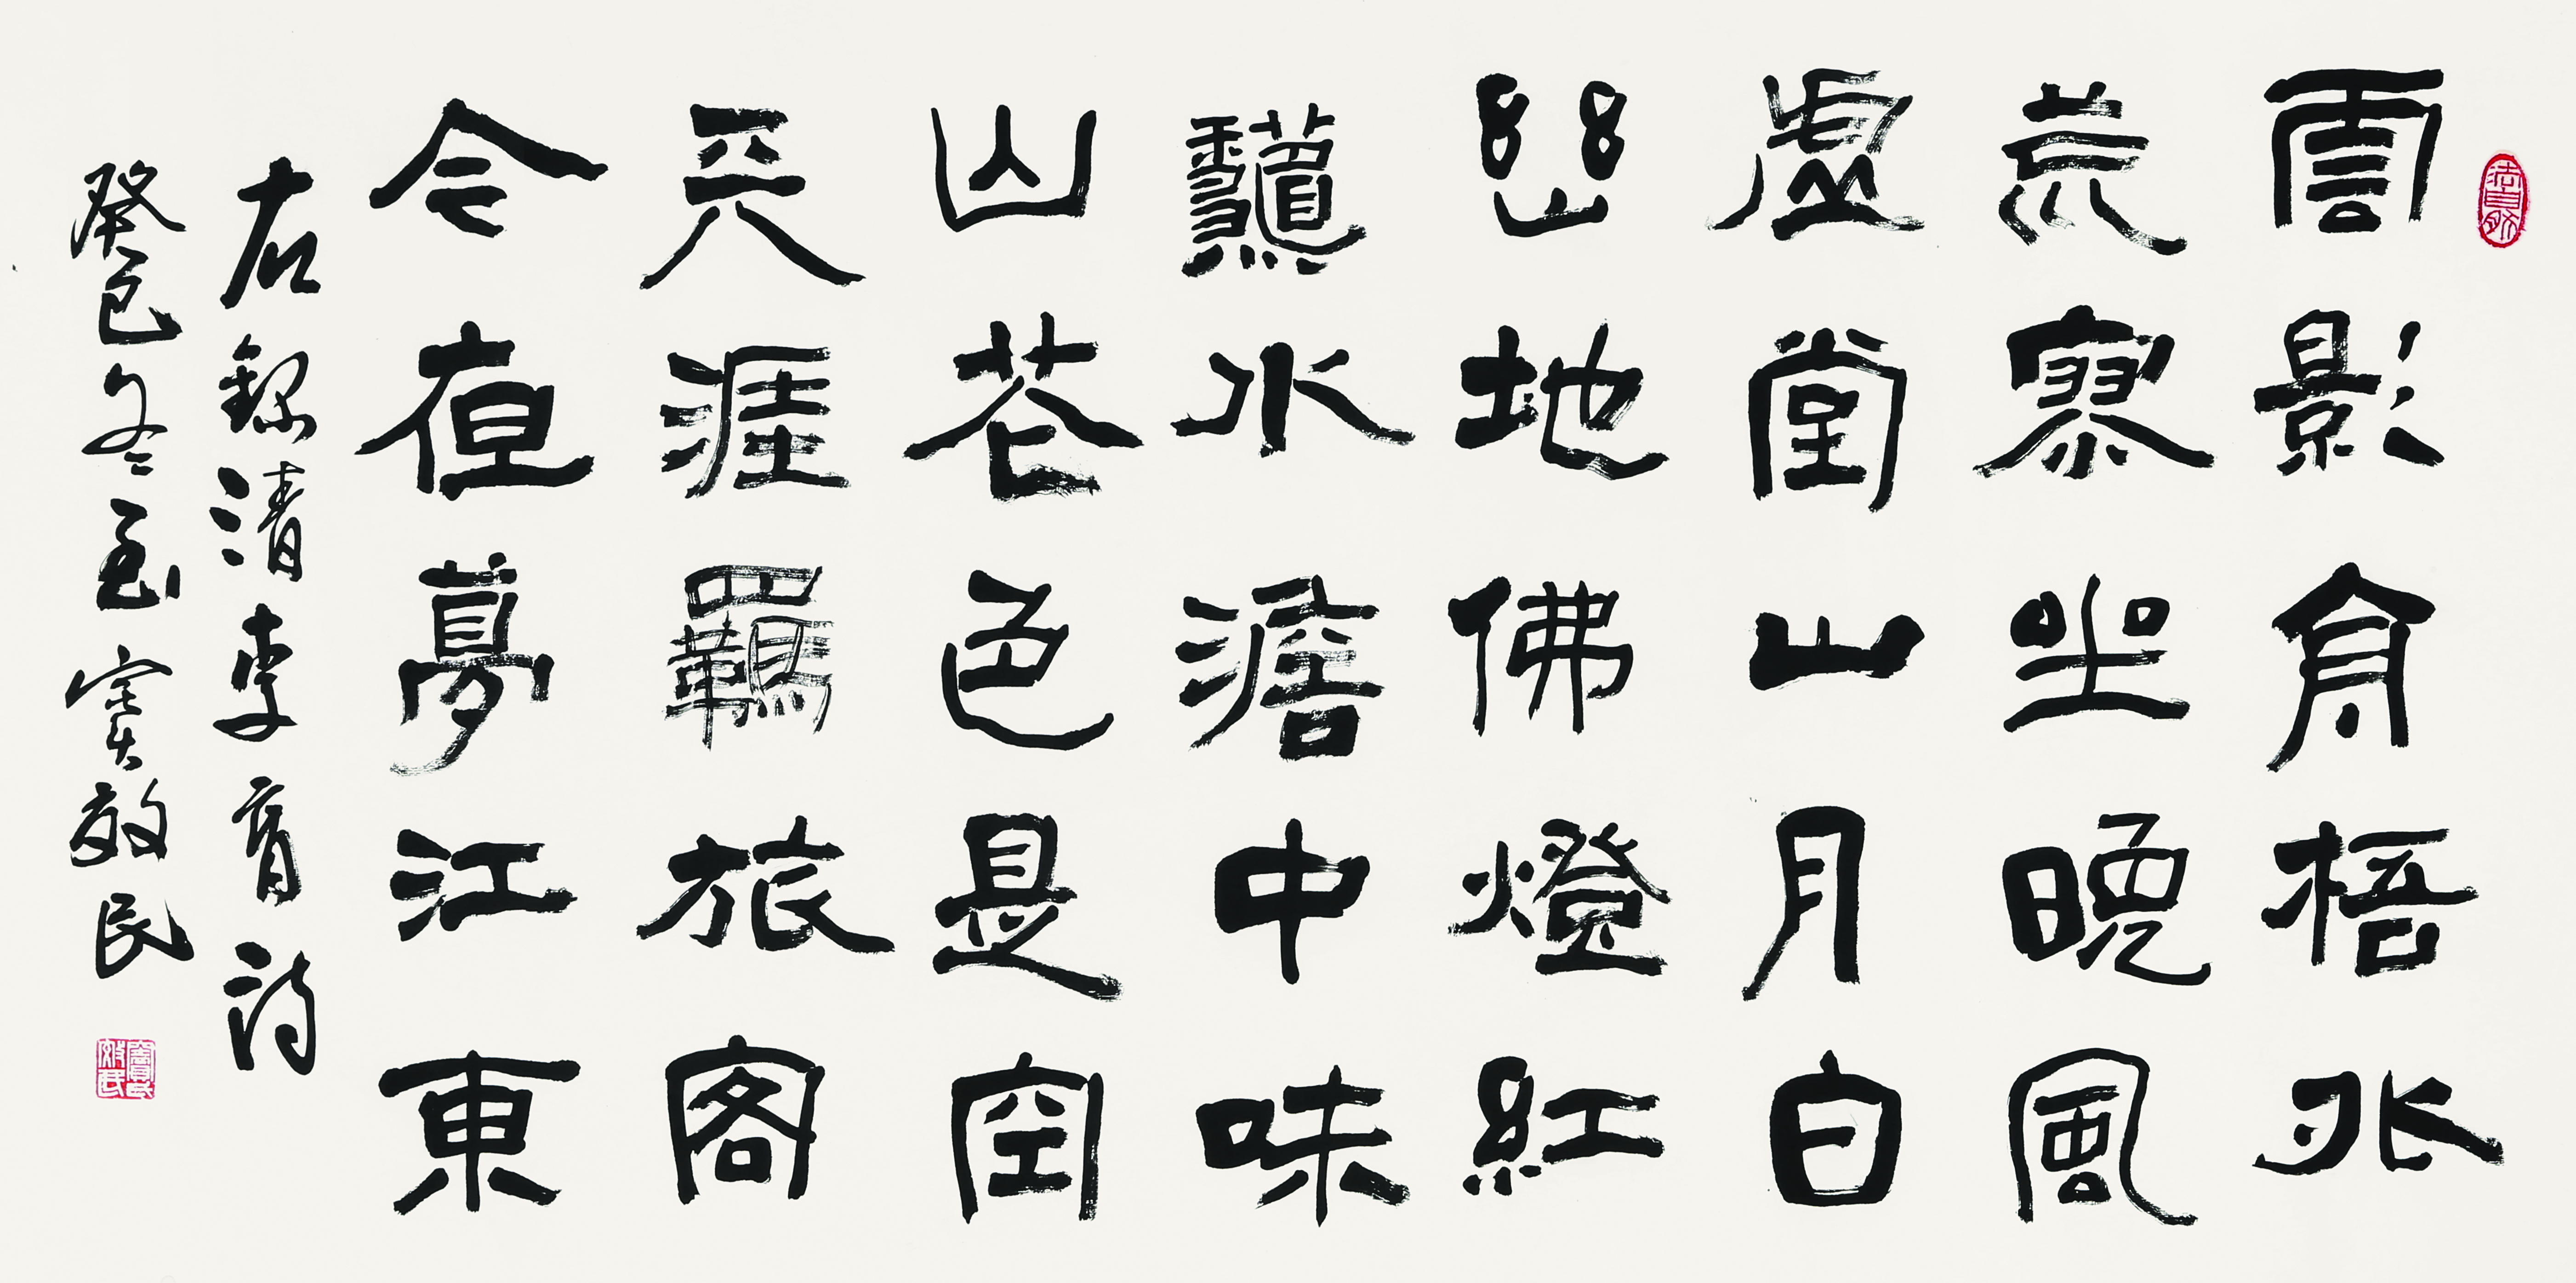 雲影梧外
荒寥坐晚風
虛堂山月白
幽地佛燈紅
水澹中味
山花色是空
天涯羈旅客
今夜夢江東
右録清李育詩
癸巳冬至 竇效民